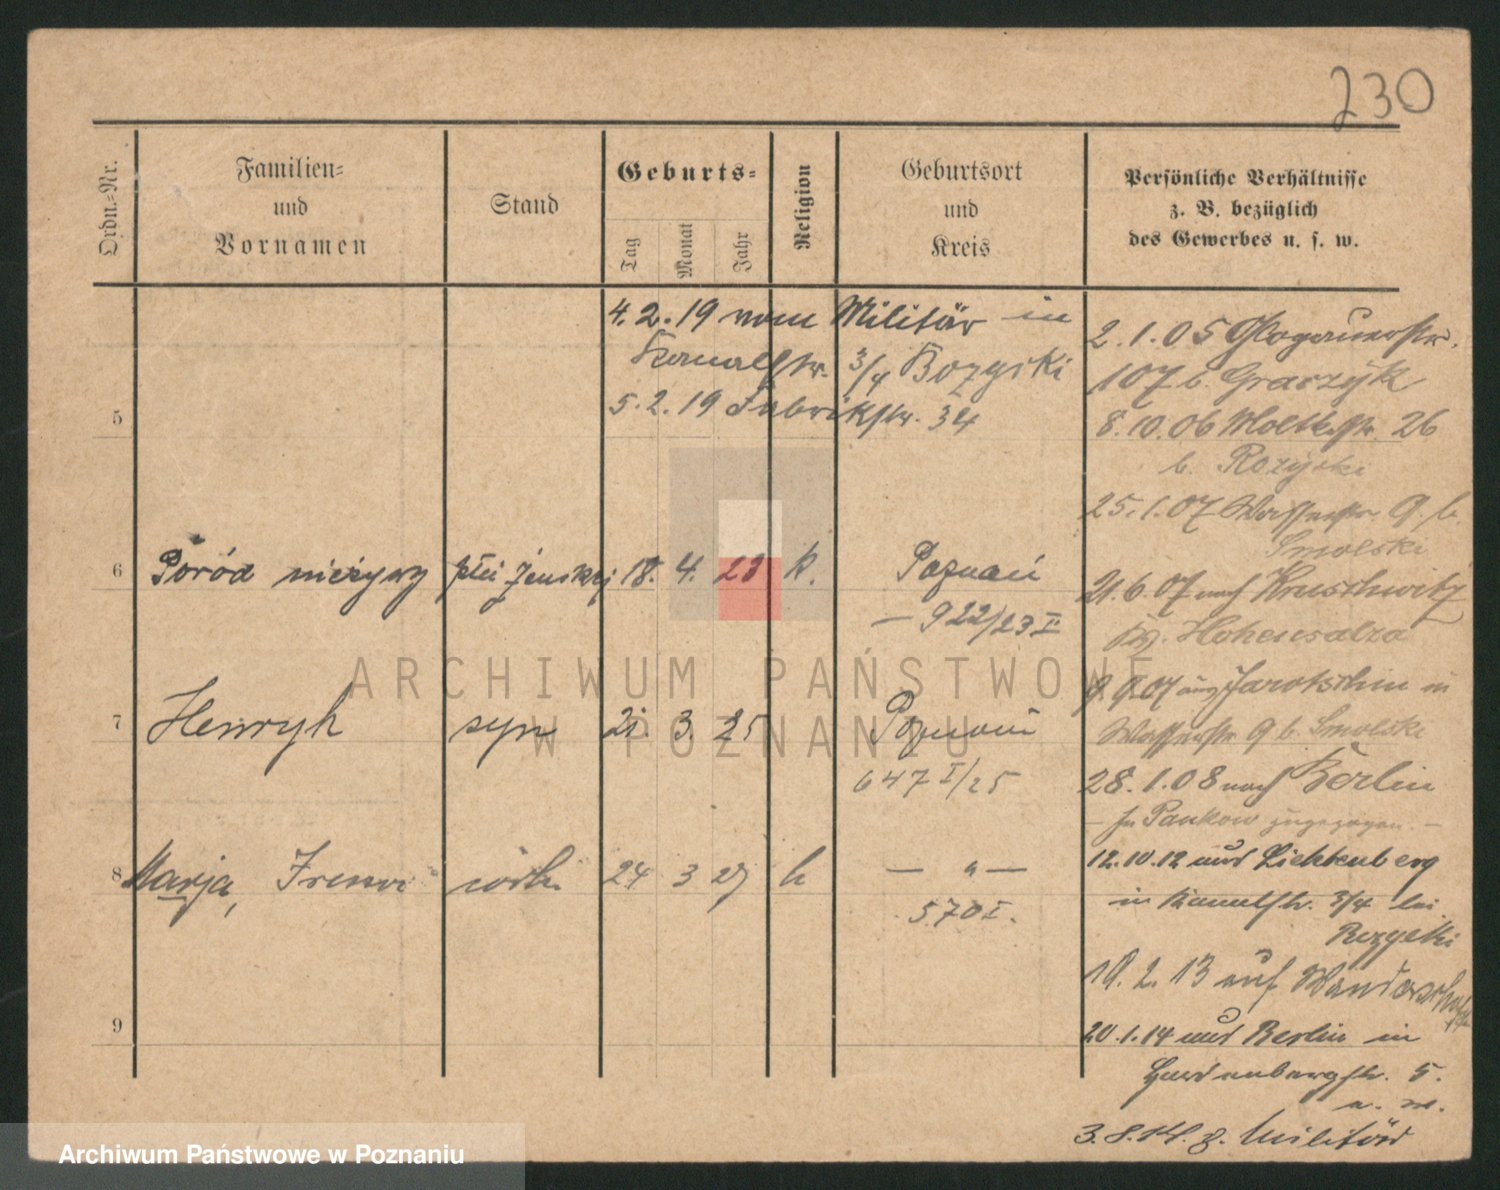 230
Ordn.-Nr.
Familien-
und
Vornamen
Stand
Geburts-
Tag
Monat
Jahr
Religion
Geburtsort
und
Kreis
Persönliche Verhältnisse
z. B. bezüglich
des Gewerbes u. s. w.
4. 2. 19 vom Militär in
Kanalstr. 3/4 Rozyski
5. 2. 19 Fabrikstr. 34
5
6 Poród nieżywy płci żeńskiej 18. 4. 23 k. Poznań
— 922/23 I
7 Henryk syn 21. 3. 25 Poznań
647 I/25
8 Marja, Irena córka 24 3 27 k — " —
570 I.
9
2. 1. 05 Glogauerstr.
107 b. Graczyk
8. 10. 06 Moltkestr. 26
b. Rozyski
25. 1. 07 Wasserstr. 9 b.
Smolski
21. 6. 07 nach Kruschwitz
Krs. Hohensalza
9. 9. 07 aus Jarotschin in
Wasserstr 9 b. Smolski
28. 1. 08 nach Berlin
— In Pankow zugezogen. —
12. 10. 12 aus Lichtenberg
in Kanalstr. 3/4 bei
Rozyski
18. 2. 13 auf Wanderschaft
20. 1. 14 aus Berlin in
Hardenbergstr. 5.
3. 8. 14. z. Militär
ARCHIWUM PAŃSTWOWE
W POZNANIU
Archiwum Państwowe w Poznaniu